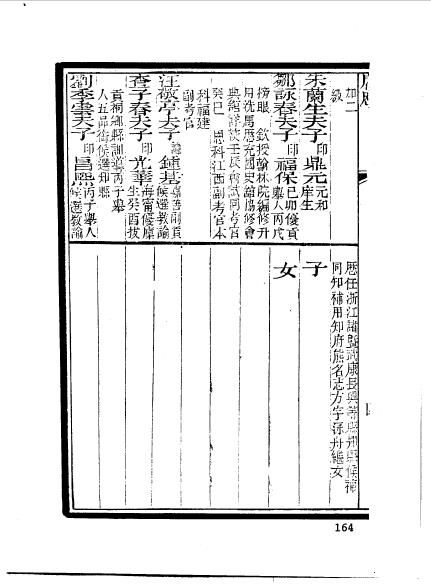 加二
級
朱蘭生夫子印鼎元元和
庠生
鄒詠春夫子印福保己卯優貢
舉人丙戌
榜眼 欽授翰林院編修升
用洗馬歷充國史館協修會
典館詳校壬辰會試同考官
癸巳 恩科江西副考官本
科福建
副考官
汪 亭夫子諭鍾
善副貢
候選教諭
查子春夫子印光華海寧優廩
生癸酉拔
貢祠鄉縣訓導丙子舉
人五品銜候選知縣
劉 夫子印昌熙丙子舉人
候選教諭
歷任浙江諸暨武康長興等縣知縣候補
同知補用知府熊名志方字 舟繼女
子
女
164